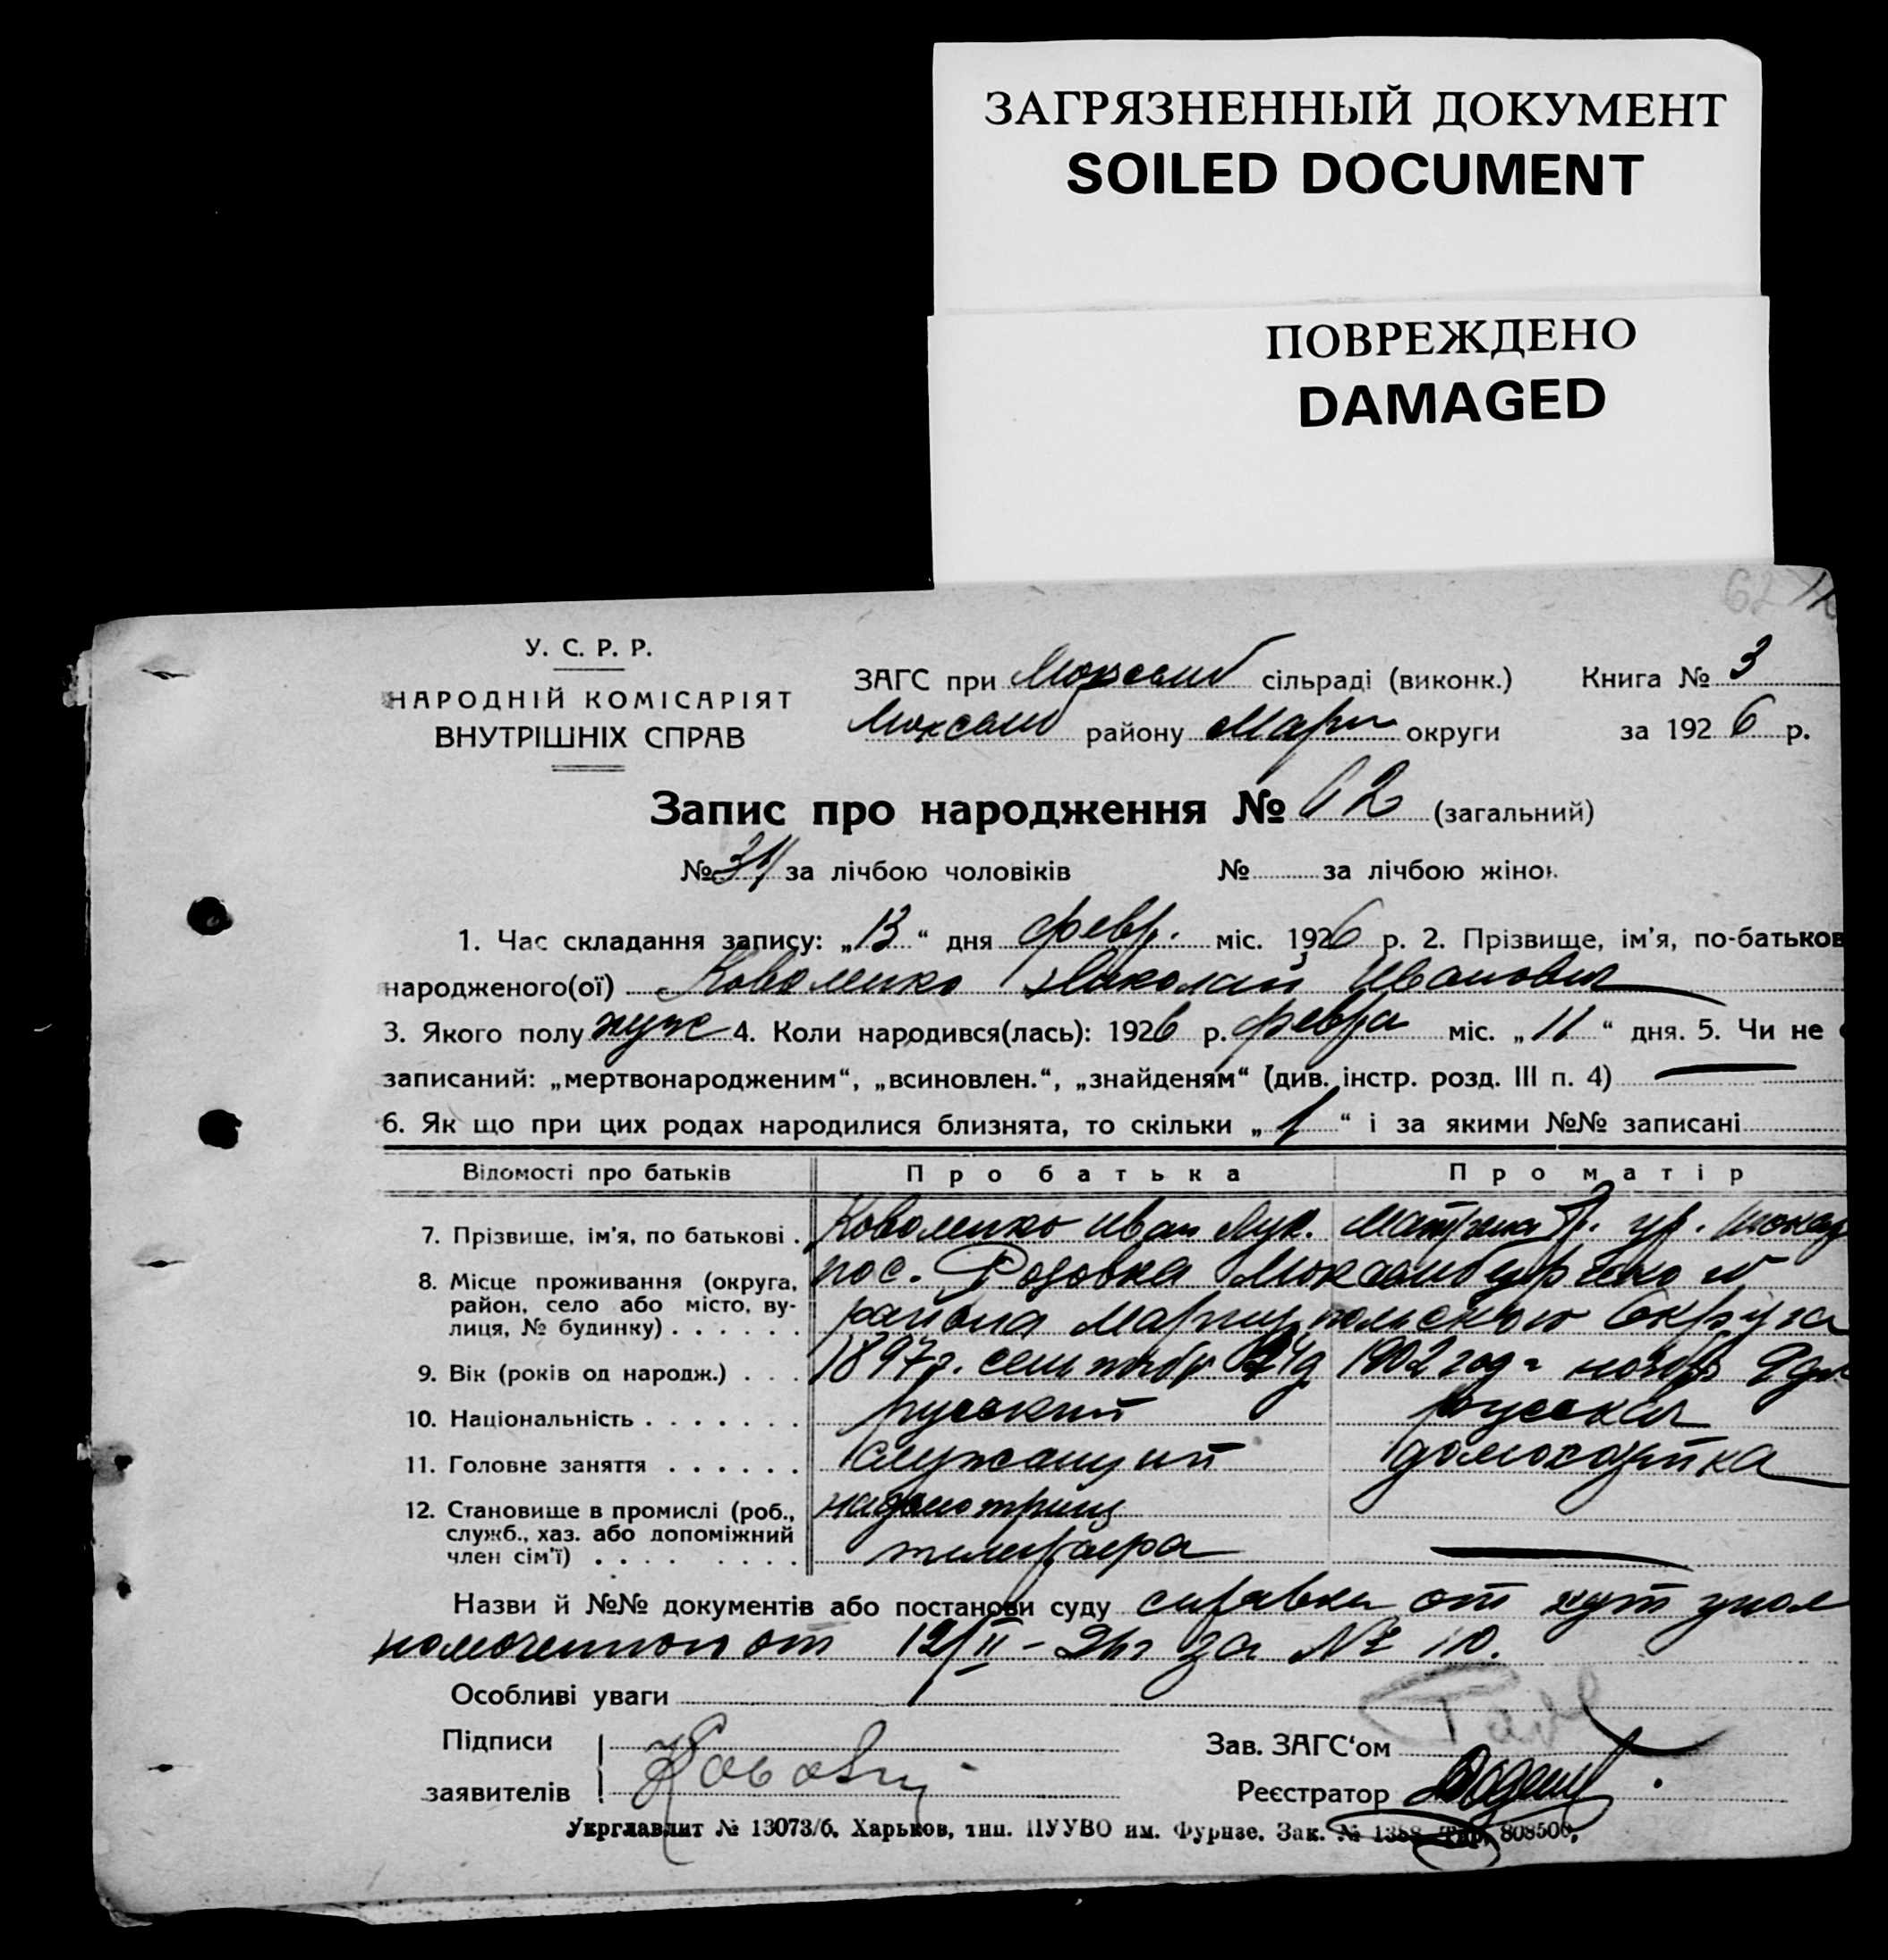 ЗАГРЯЗНЕННЫЙ ДОКУМЕНТ
SOILED DOCUMENT
ПОВРЕЖДЕНО
DAMAGED
62
У. С. Р. Р.
НАРОДНІЙ КОМІСАРІЯТ
ВНУТРІШНІХ СПРАВ
ЗАГС при сільраді (виконк.) Книга № 3
району Мари округи за 1926 р.
Запис про народження № 62 (загальний)
№ 31 за лічбою чоловіків № за лічбою жінок
1. Час складання запису: „13“ дня февр. міс. 1926 р. 2. Прізвище, ім’я, по-батьков
народженого(ої) Коваленко Николай Иванович
3. Якого полу муж 4. Коли народився(лась): 1926 р. февра міс. „11“ дня. 5. Чи не
записаний: „мертвонародженим“, „всиновлен.“, „знайденям“ (див. інстр. розд. III п. 4)
6. Як що при цих родах народилися близнята, то скільки „1“ і за якими №№ записані
Відомості про батьків Про батька Про матір
7. Прізвище, ім’я, по батькові . Коваленко Иван Лук. Матрена
8. Місце проживання (округа, район, село або місто, вулиця, № будинку) . . . . . . пос. Розовка Люксембургского
района Мариупольского Округа
9. Вік (років од народж.) . . . 1897 г. сентября 24 д 1902 год ноябр 9 дня
10. Національність . . . . . . . русский русская
11. Головне заняття . . . . . . служащий домохозяйка
12. Становище в промислі (роб., служб., хаз. або допоміжний член сім’ї) . . . . . . . . надсмотрщ
телеграфа
Назви й №№ документів або постанови суду справка от
от 12/II - 26 г за № 10.
Особливі уваги
Підписи
заявителів
Зав. ЗАГС‘ом
Реєстратор
Укрглавлит № 13073/6. Харьков, тип. ПУУВО им. Фурнзе. Зак. № 1388 Тир. 808500.